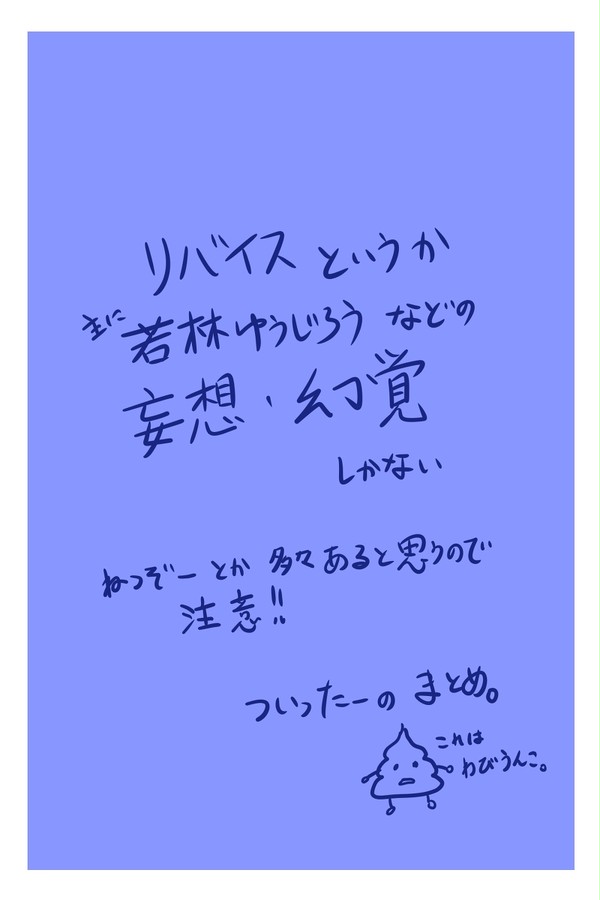 リバイス というか
主に 若林ゆうじろう などの
妄想・幻覚
しかない
ねつぞー とか 多々 あると思うので
注意!!
ついったーの まとめ。
これは
わびうんこ。